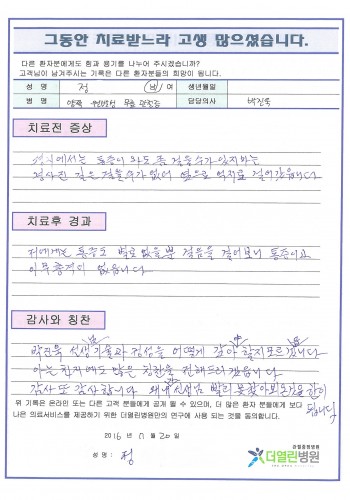 그동안 치료받느라 고생 많으셨습니다.
다른 환자분에게도 힘과 용기를 나누어 주시겠습니까?
고객님이 남겨주시는 기록은 다른 환자분들의 희망이 됩니다.
성 명 정 남/여 생년월일
병 명 양쪽 퇴행성 무릎 관절증 담당의사 박진욱
치료전 증상
평지에서는 통증이 와도 좀 걸을수가 있지마는
경사진 길은 걸을수가 없어 옆으로 억지로 걸어갔읍니다
치료후 경과
저에게는 통증도 별로 없을뿐 걸음을 걸어보니 통증이고
아무 충격이 없읍니다
감사와 칭찬
박진욱 선생 기술과 정성을 어떻게 갚아야 할지 모르겠습니다
아는 환자에도 많은 칭찬을 전해드리겠읍니다
감사 또 감사합니다 왜 내 선생님 빨리 못찾아뵈온감을
됩니다
위 기록은 온라인 또는 다른 고객 분들에게 공개 될 수 있으며, 더 많은 환자 분들에게 보다
나은 의료서비스를 제공하기 위한 더열린병원만의 연구에 사용 되는 것을 동의합니다.
2016 년 11 월 20 일
성 명 : 정
관절종합병원
더열린병원